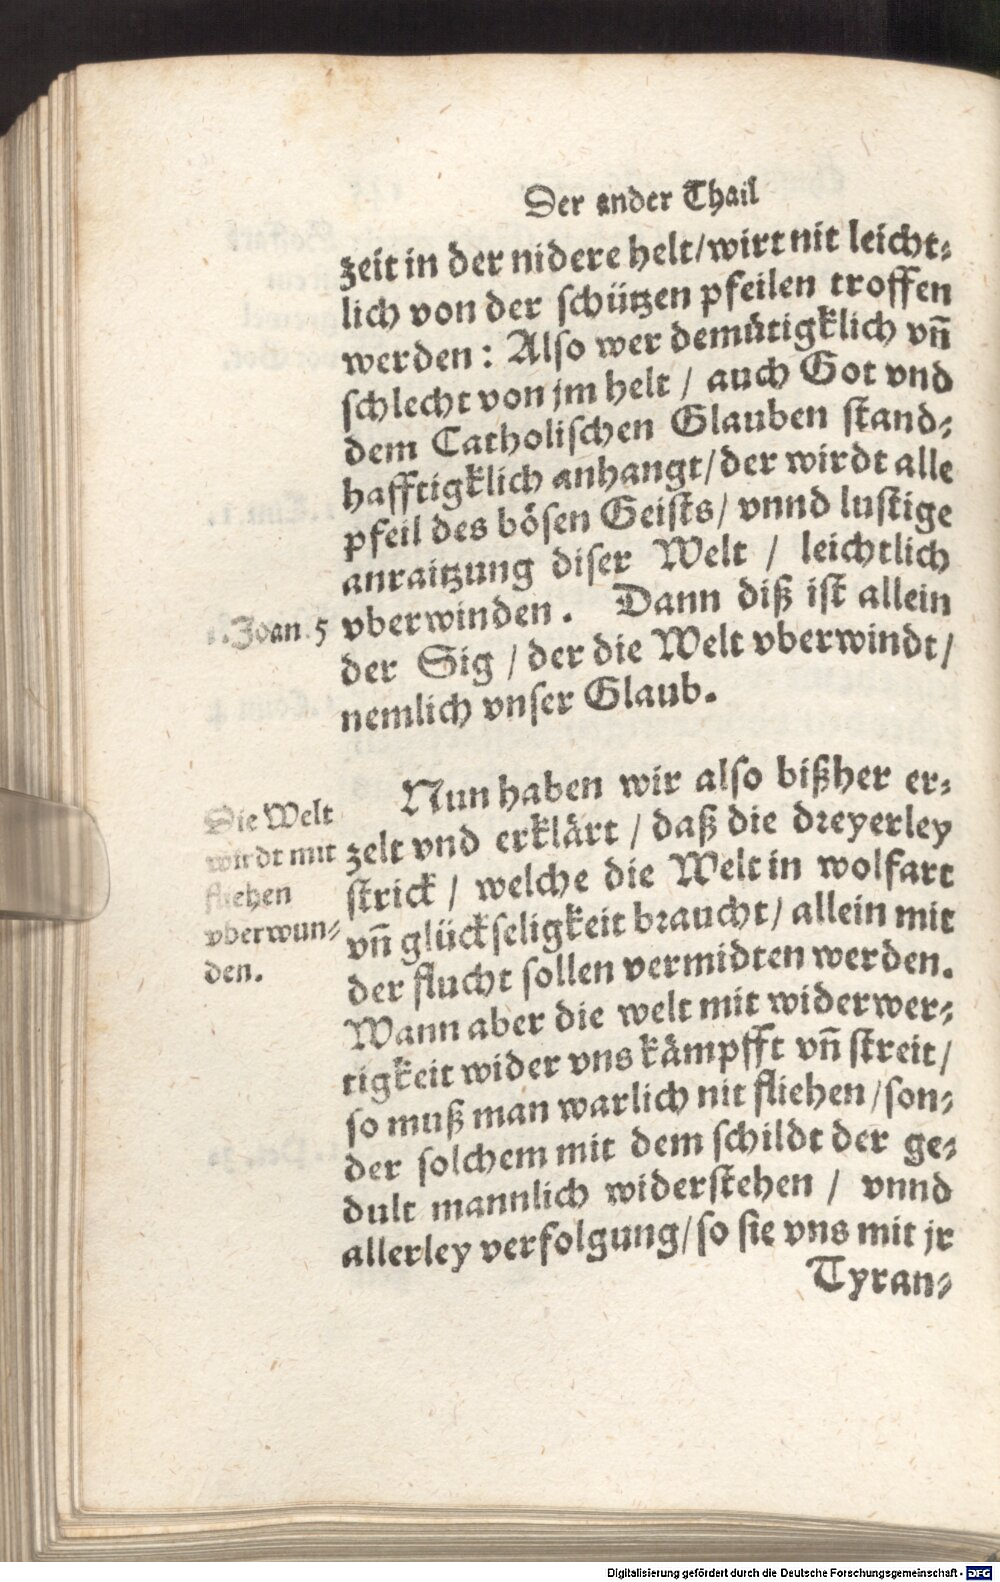 Der ander Thail
zeit in der nidere helt/wirt nit leicht⸗
lich von der schützen pfeilen troffen
werden: Also wer demütigklich vñ
schlecht von jm helt / auch Got vnd
dem Catholischen Glauben stand⸗
hafftigklich anhangt/der wirdt alle
pfeil des bösen Geists/ vnnd lustige
anraitzung diser Welt / leichtlich
vberwinden. Dann diß ist allein
der Sig / der die Welt vberwindt/
nemlich vnser Glaub.
1. Joan. 5
Nun haben wir also bißher er⸗
zelt vnd erklärt / daß die dreyerley
strick / welche die Welt in wolfart
vñ glückseligkeit braucht/ allein mit
der flucht sollen vermidten werden.
Wann aber die welt mit widerwer⸗
tigkeit wider vns kämpfft vñ streit/
so muß man warlich nit fliehen/son⸗
der solchem mit dem schildt der ge⸗
dult mannlich widerstehen / vnnd
allerley verfolgung/so sie vns mit jr
Tyran⸗
Die Welt
wirdt mit
fliehen
vberwun⸗
den.
Digitalisierung gefördert durch die Deutsche Forschungsgemeinschaft - DFG